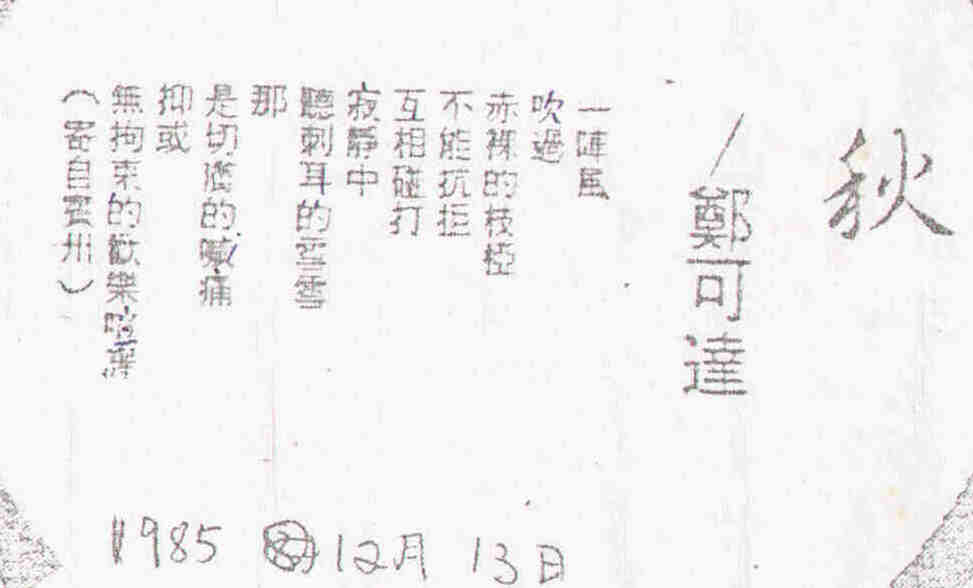 秋
／鄭可達
一陣風
吹過
赤裸的枝椏
不能抗拒
互相碰打
寂靜中
聽刺耳的雪雪
那
是切膚的喊痛
抑或
無拘束的歡樂
（寄自賓州）
1985 12月 13日